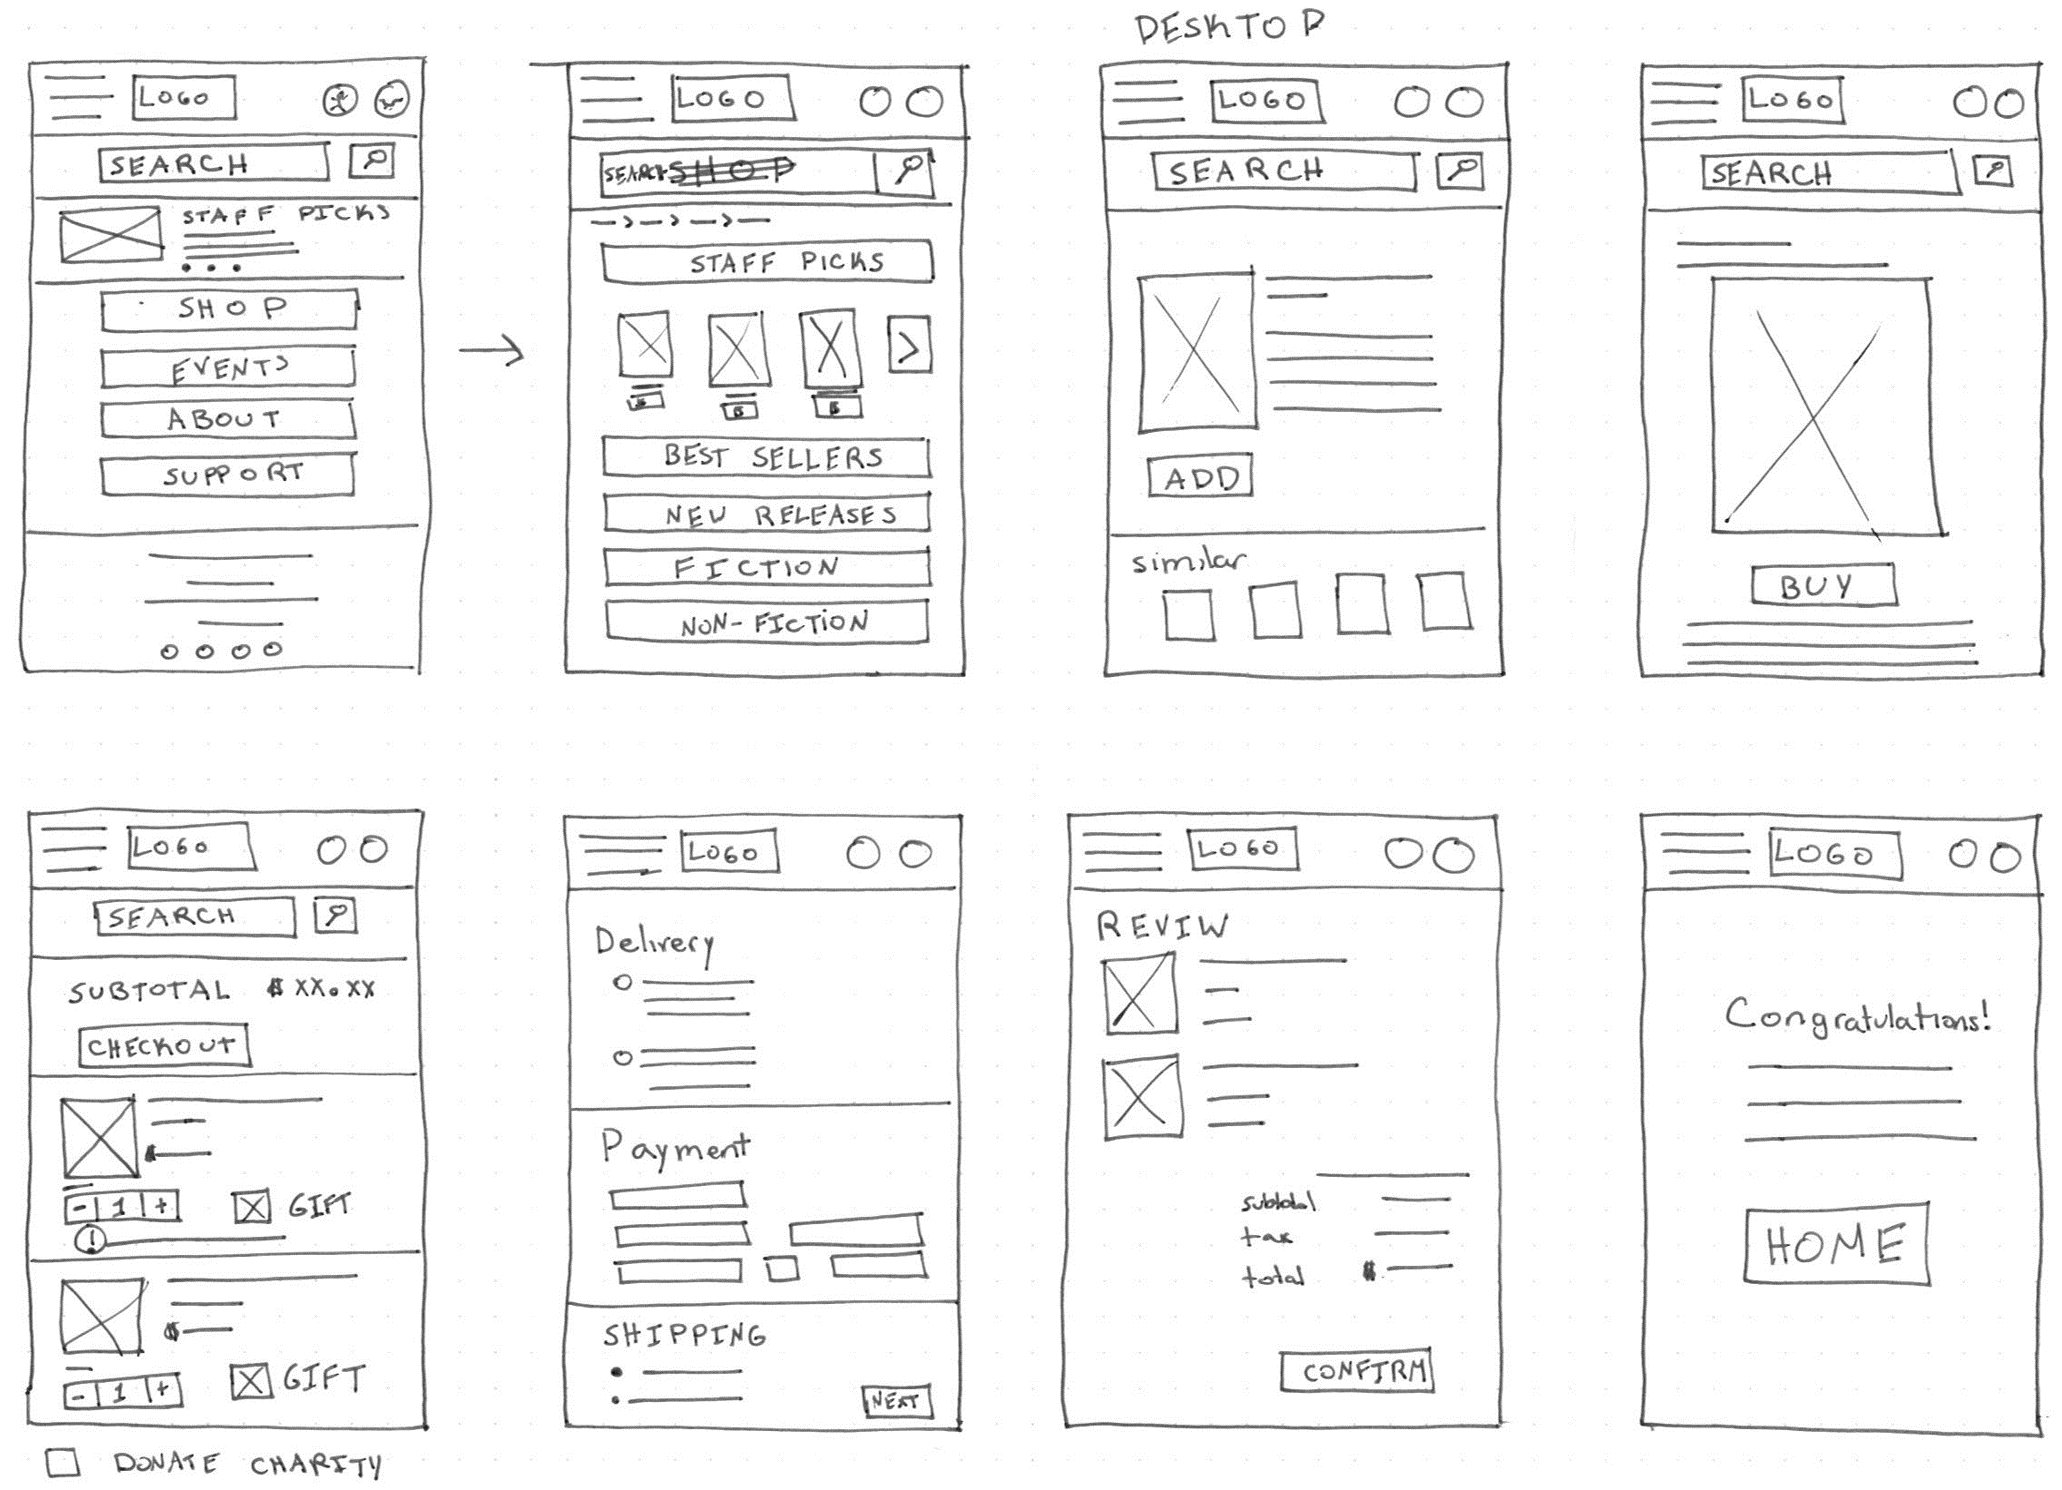 DESKTOP
LOGO
SEARCH
STAFF PICKS
SHOP
EVENTS
ABOUT
SUPPORT
LOGO
SEARCH SHOP
STAFF PICKS
$ $ $
BEST SELLERS
NEW RELEASES
FICTION
NON-FICTION
LOGO
SEARCH
ADD
similar
LOGO
SEARCH
BUY
LOGO
SEARCH
SUBTOTAL $XX.XX
CHECKOUT
$
- 1 + GIFT
!
$
- 1 + GIFT
DONATE CHARITY
LOGO
Delivery
Payment
SHIPPING
NEXT
LOGO
REVIW
subtotal
tax
total $
CONFIRM
LOGO
Congratulations!
HOME